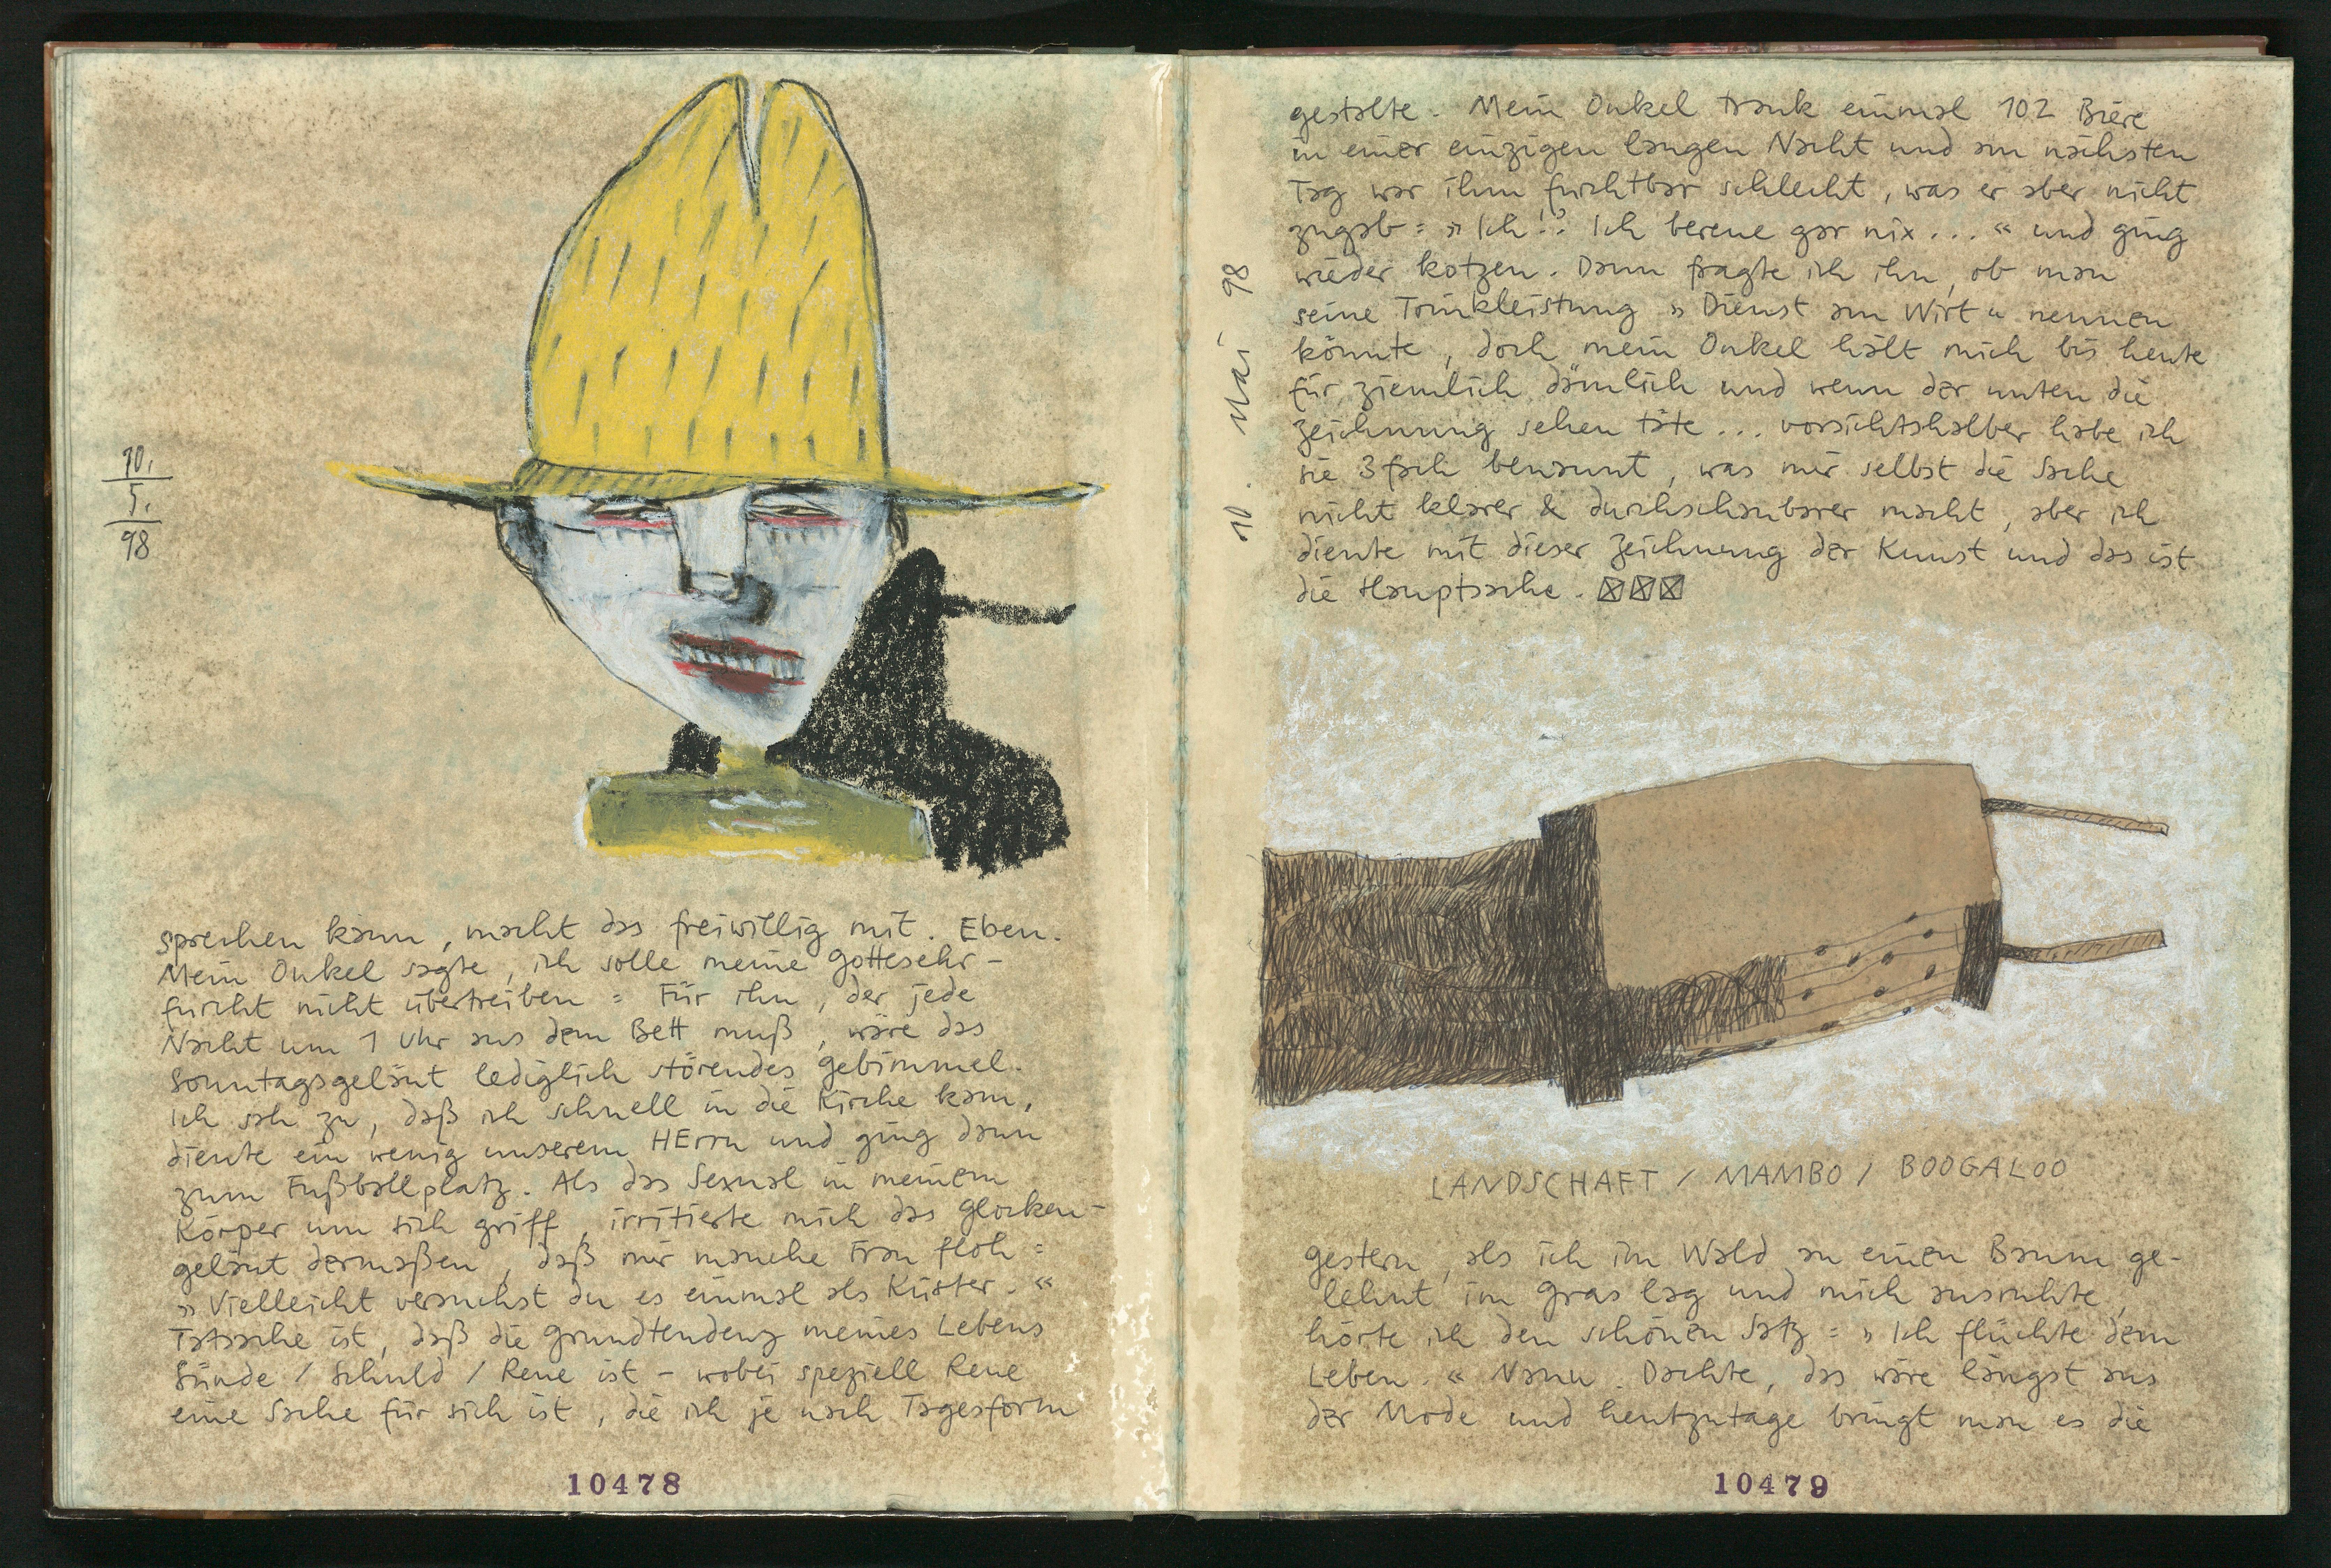 10.
5.
98
sprechen kann, macht das freiwillig mit. Eben.
Mein Onkel sagte, ich solle meine Gottesehr-
furcht nicht übertreiben = Für ihn, der jede
Nacht um 1 Uhr aus dem Bett muß, wäre das
Sonntagsgeläut lediglich störendes Gebimmel.
Ich sah zu, daß ich schnell in die Kirche kam,
diente ein wenig unserem HErrn und ging dann
zum Fußballplatz. Als das Sexual in meinem
Körper um sich griff, irritierte mich das Glocken-
geläut dermaßen, daß mir manche Frau floh =
»Vielleicht versuchst du es einmal als Küster.«
Tatsache ist, daß die Grundtendenz meines Lebens
Sünde / Schuld / Reue ist – wobei speziell Reue
eine Sache für sich ist, die ich je nach Tagesform
10478
10. Mai 98
gestalte. Mein Onkel trank einmal 102 Biere
in einer einzigen langen Nacht und am nächsten
Tag war ihm furchtbar schlecht, was er aber nicht
zugab = »Ich!? Ich bereue gar nix...« und ging
wieder kotzen. Dann fragte ich ihn, ob man
seine Trinkleistung »Dienst am Wirt« nennen
könnte, doch mein Onkel hält mich bis heute
für ziemlich dämlich und wenn der unten die
Zeichnung sehen täte... vorsichtshalber habe ich
sie 3fach benannt, was mir selbst die Sache
nicht klarer & durchschaubarer macht, aber ich
diente mit dieser Zeichnung der Kunst und das ist
die Hauptsache. ☒☒☒
LANDSCHAFT / MAMBO / BOOGALOO
Gestern, als ich im Wald an einen Baum ge-
lehnt im Gras lag und mich ausruhte,
hörte ich den schönen Satz = »Ich flüchte dem
Leben.« Nanu. Dachte, das wäre längst aus
der Mode und heutzutage bringt man es die
10479